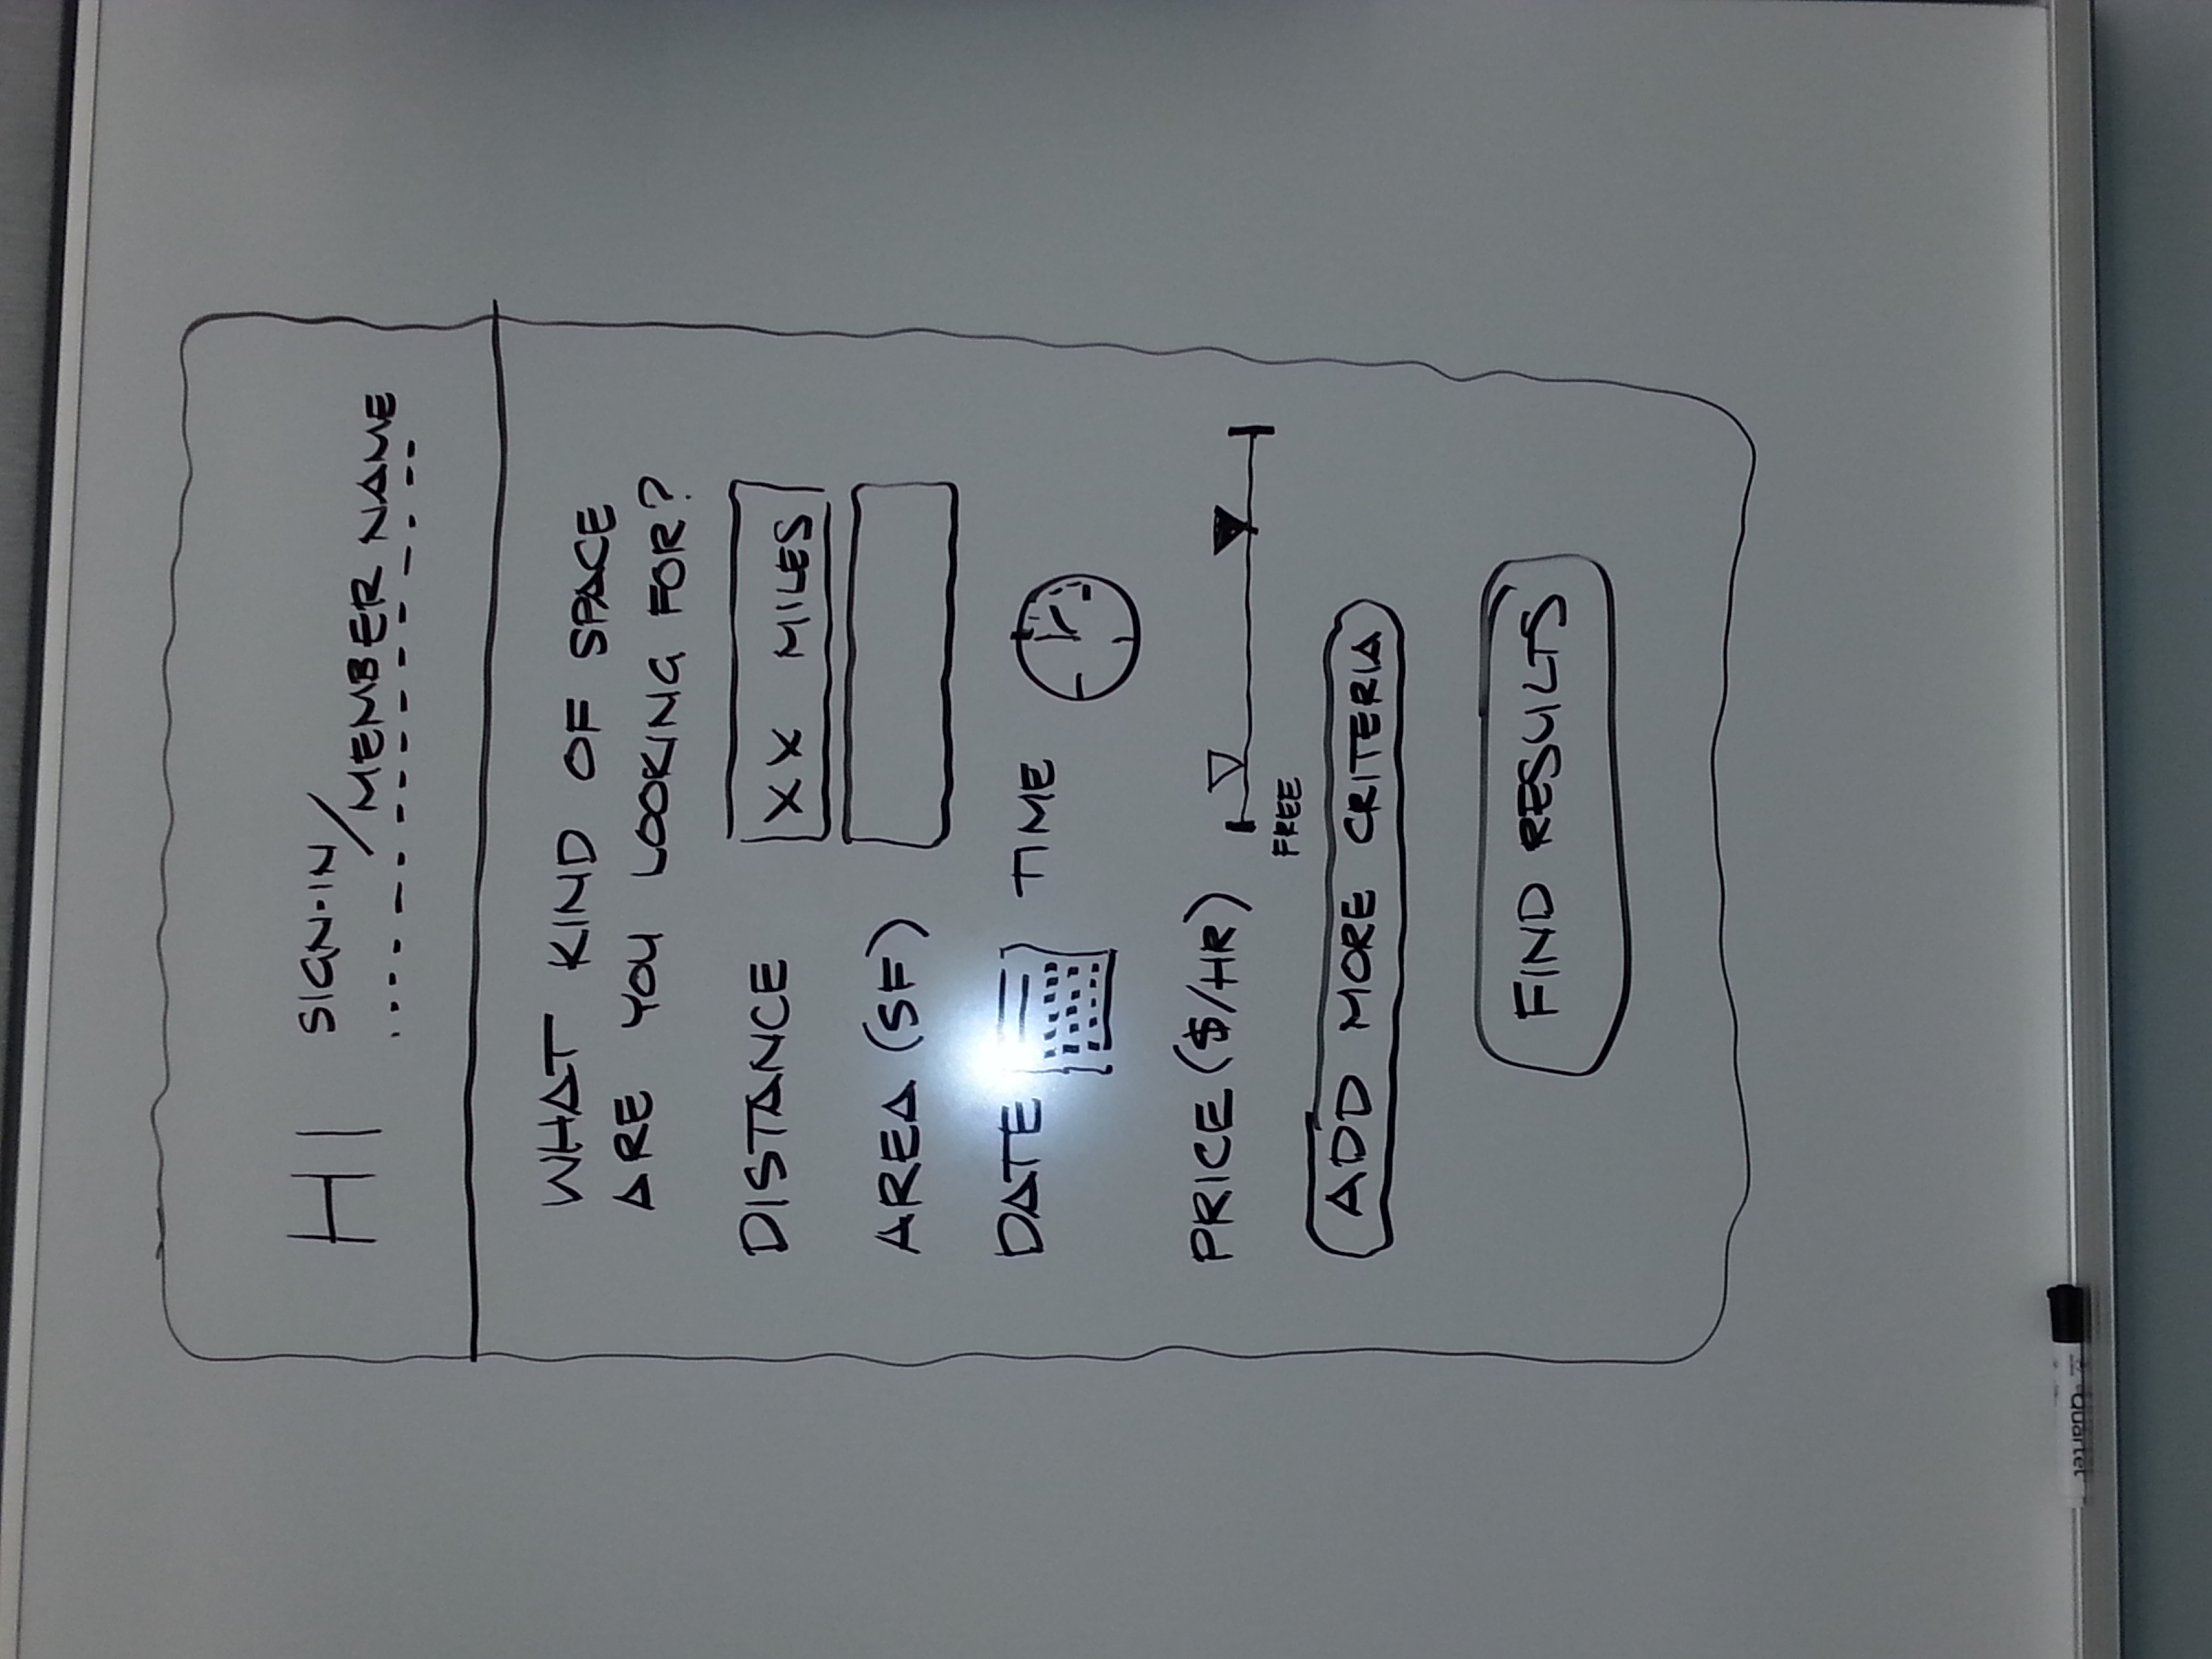 HI SIGN-IN/MEMBER NAME
WHAT KIND OF SPACE
ARE YOU LOOKING FOR?
DISTANCE XX MILES
AREA (SF)
DATE TIME
PRICE ($/HR)
FREE
ADD MORE CRITERIA
FIND RESULTS
Quartet